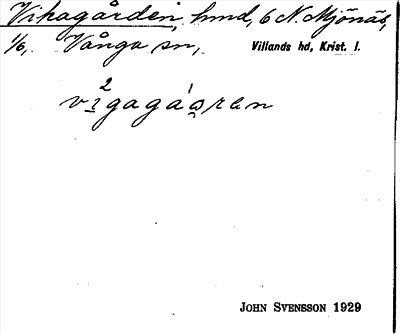 Vikagården, hmd, 6 N. Mjönäs,
1/6, Vånga sn, Villands hd, Krist. l.
JOHN SVENSSON 1929